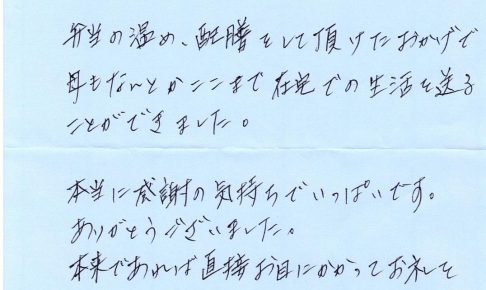 弁当の温め、配膳をして頂けたおかげで
母もなんとかここまで在宅での生活を送る
ことができました。
本当に感謝の気持ちでいっぱいです。
ありがとうございました。
本来であれば直接お目にかかってお礼して